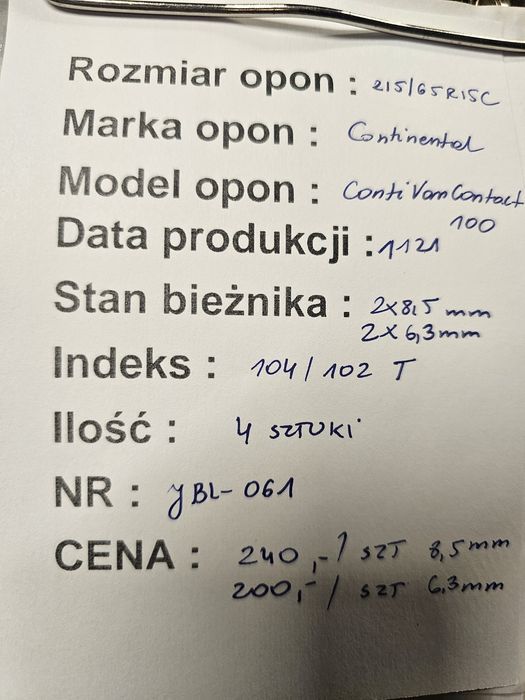 Rozmiar opon : 215/65R15C
Marka opon : Continental
Model opon : ContiVanContact
100
Data produkcji : 1121
Stan bieżnika : 2x8,5 mm
2x6,3mm
Indeks : 104/102 T
Ilość : 4 SZTUKI
NR : JBL-061
CENA : 240,-/ SZT 8,5mm
200,-/ SZT 6.3mm